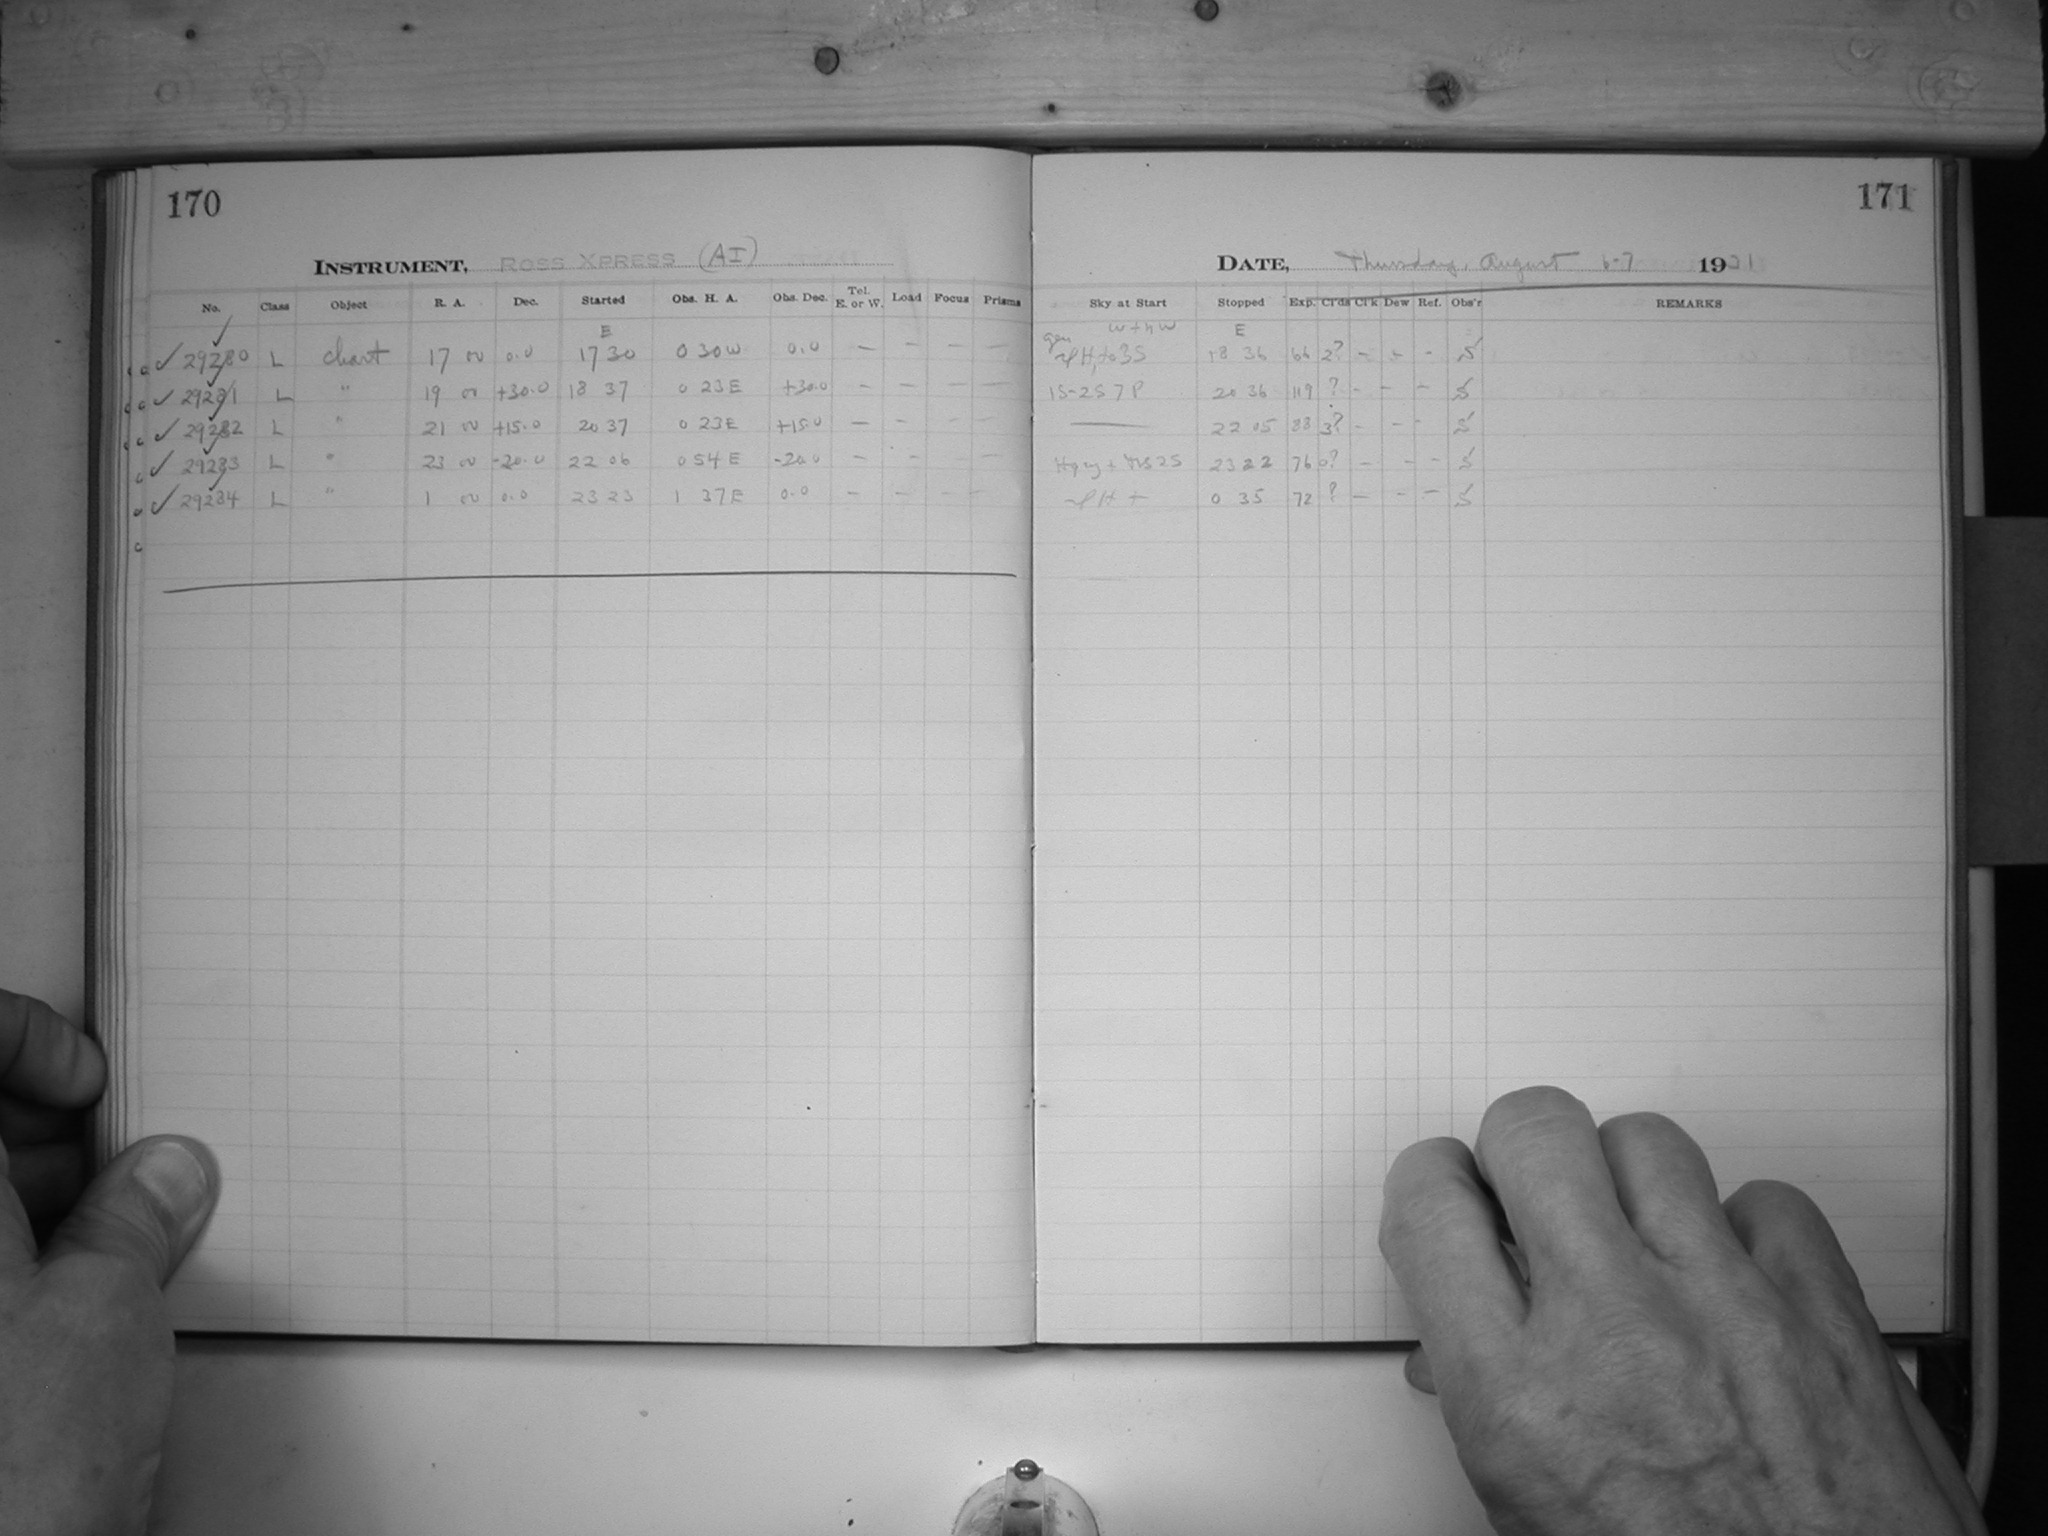 170
INSTRUMENT, ROSS XPRESS (AI)
No. Class Object R. A. Dec. Started Obs. H. A. Obs. Dec. Tel. E. or W. Load Focus Prisms
E
29280 L chart 17 00 0.0 17 30 0 30W 0.0 — — — —
29281 L " 19 00 +30.0 18 37 0 23E +30.0 — — — —
29282 L " 21 00 +15.0 20 37 0 23E +15.0 — — — —
29283 L " 23 00 -20.0 22 06 0 54E -20.0 — — — —
29284 L " 1 00 0.0 23 23 1 37E 0.0 — — — —
171
DATE, Thursday, August 6-7 19
Sky at Start Stopped Exp. Cl'ds Cl'k Dew Ref. Obs'r REMARKS
E
18 36 66 2? - - -
1S-2S 7P 20 36 119 ? - - -
— 22 05 88 3? - - -
23 22 76 0? - - -
0 35 72 ? - - -